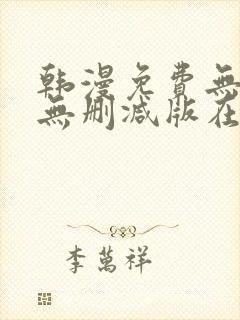 韩漫免費無
無删减版在
李萬祥